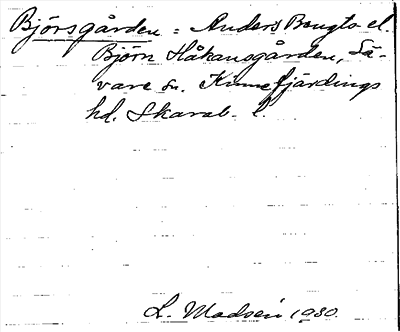 Björsgården = Anders Bengts el.
Björn Håkansgården, Sä-
vare sn. Kinnefjärdings
hd. Skarab. l.
L. Madsén 1930.